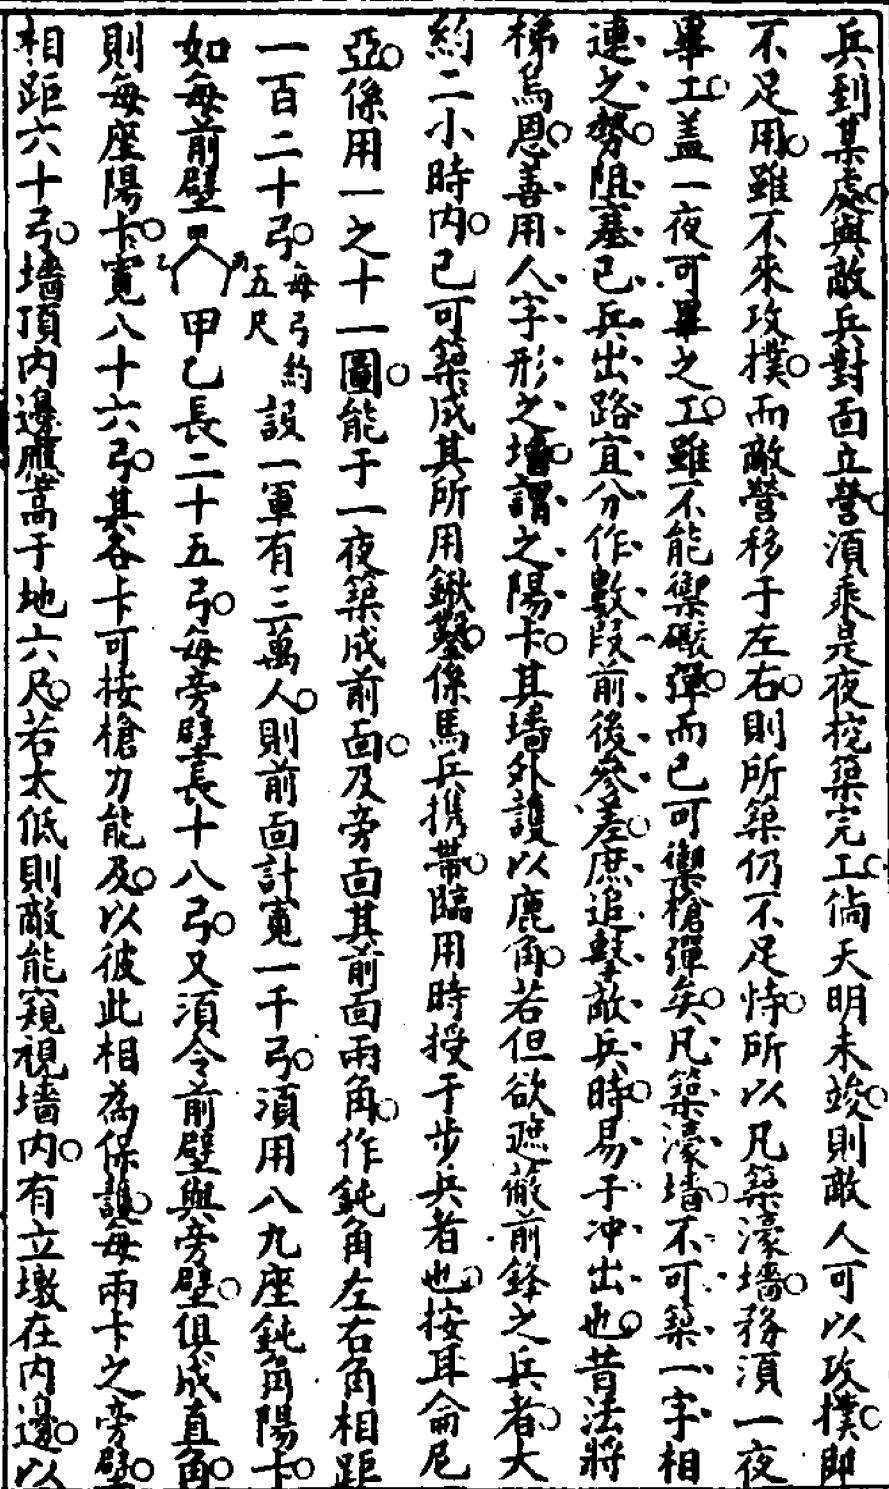 兵到某處與敵兵對面立營須乘是夜挖築完工倘天明未竣則敵人可以攻撲即
不足用雖不來攻撲而敵營移于左右則所築仍不足恃所以凡築濠墻務須一夜
畢工蓋一夜可畢之工雖不能禦礮彈而已可禦槍彈矣凡築濠墻不可築一字相
連之勢阻塞已兵出路宜分作數段前後參差庶追擊敵兵時易于冲出也昔法將
梯烏恩善用人字形之墻謂之陽卡其墻外護以鹿角若但欲遮蔽前鋒之兵者大
約二小時內已可築成其所用鍬鑿係馬兵携帶臨用時授于步兵者也按耳侖尼
亞係用一之十一圖能于一夜築成前面及旁面其前面兩角作鈍角左右角相距
一百二十弓每弓約五尺設一軍有三萬人則前面計寬一千弓須用八九座鈍角陽卡
如每前壁甲乙丙甲乙長二十五弓每旁壁長十八弓又須令前壁與旁壁俱成直角
則每座陽卡寬八十六弓其各卡可按槍力能及以彼此相為保護每兩卡之旁壁
相距六十弓墻頂內邊應高于地六尺若太低則敵能窺視墻內有立墩在內邊以